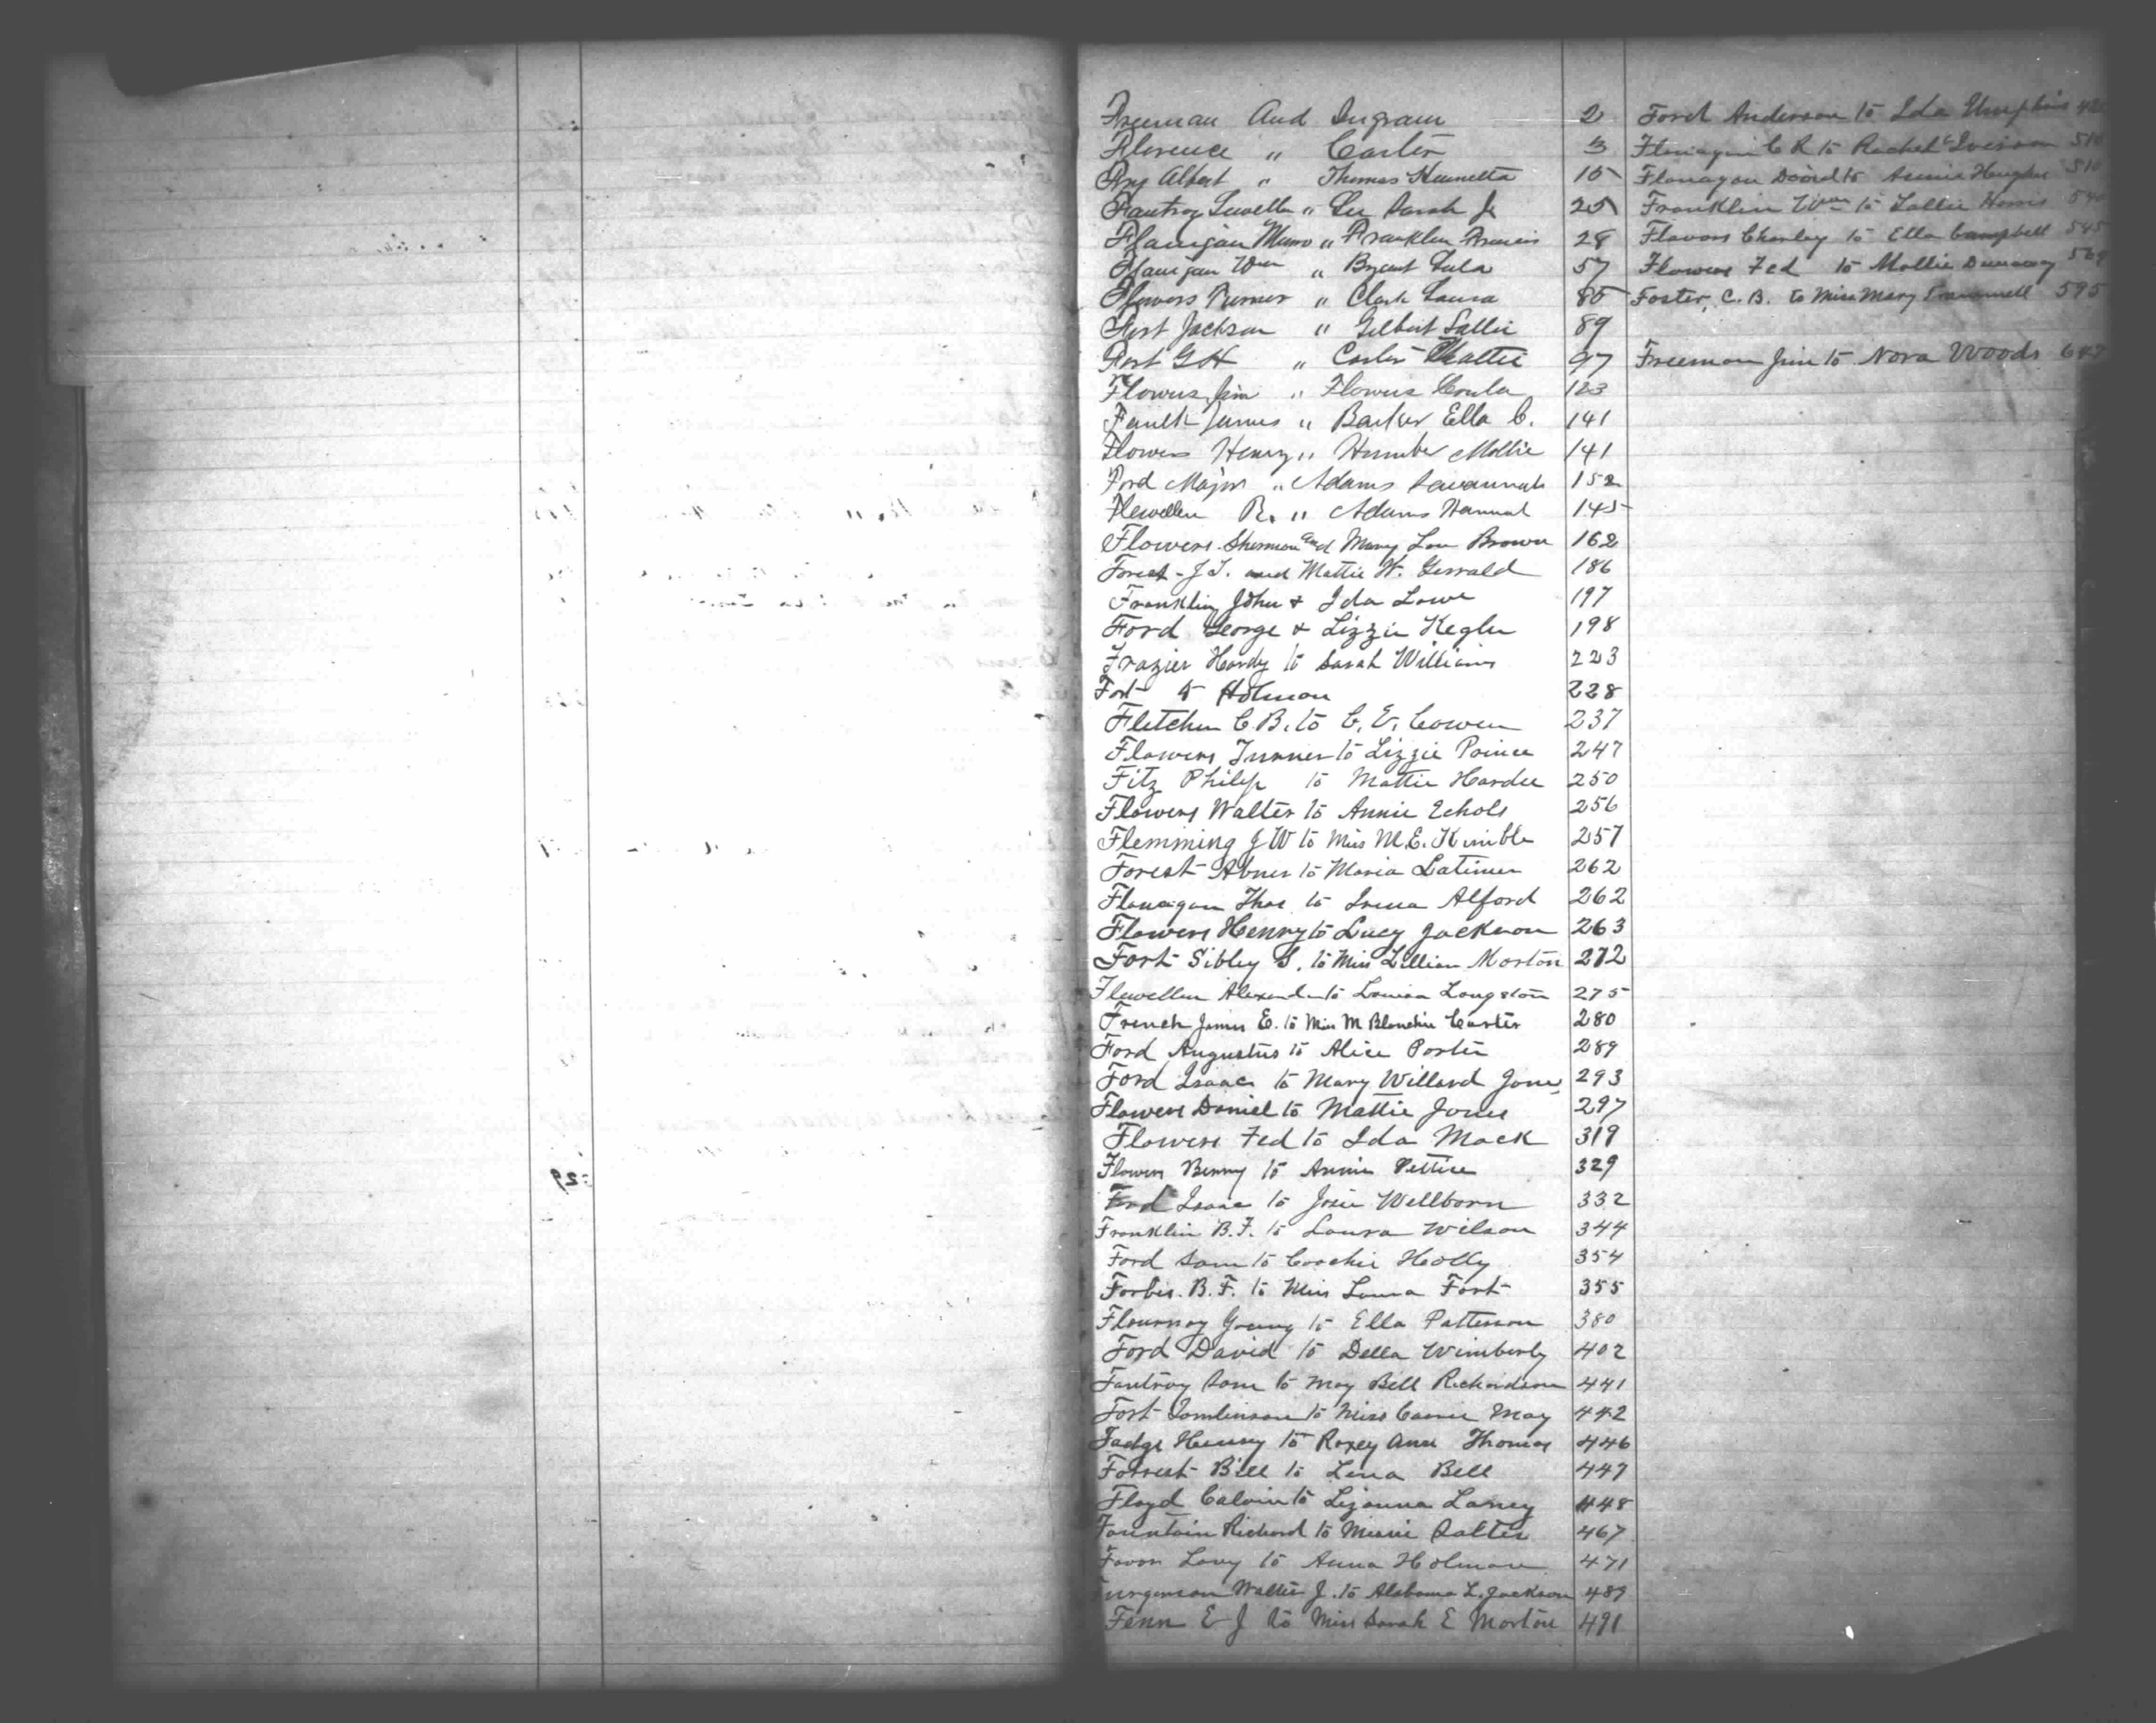 Freeman And Ingram 2
Florence " Carter 3
Fry Albert " Thomas Hennetta 15
Fantroy Lewella " Lee Sarah J. 25
Flanigan Munro " Franklin Francis 28
Flanigan Wm " Bryant Lula 57
Flowers Turner " Clark Laura 85
Fort Jackson " Gilbert Sallie 89
Fort G H " Carter Mattie 97
Flowers Jim " Flowers 123
Faulk James " Barker Ella C. 141
Flowers Henry " Humber Mollie 141
Ford Major " Adams Savannah 152
Flewellen R. " Adams Hannah 145
Flowers Sherman and Mary Lou Brown 162
Forest - J.T. and Mattie W. Gerrald 186
Franklin John & Ida Lowe 197
Ford George & Lizzie Kegler 198
Frazier Hardy to Sarah Williams 223
Fort & Holman 228
Fletcher C.B. to C. E. Cowen 237
Flowers Turner to Lizzie Prince 247
Fitz Philip to Mattie Hardee 250
Flowers Walter to Annie Echols 256
Flemming J W to Miss M.E. Kimble 257
Forest Abner to Maria Latimer 262
Flanagan Thos. to Irena Alford 262
Flowers Henry to Lucy Jackson 263
Fort Sibley S. to Miss Lillian Morton 272
Flewellen Alexander to Louisa Langston 275
French James E. to Miss M Blanchie Carter 280
Ford Augustus to Alice Porter 289
Ford Isaac to Mary Willard Jones 293
Flowers Daniel to Mattie Jones 297
Flowers Fed to Ida Mack 319
Flowers Benny to Annie Pettice 329
Ford Isaac to Josie Wellborn 332
Franklin B.F. to Laura Wilson 344
Ford Sam to Coochie Holly 354
Forbes. B.F. to Miss Laura Fort 355
Flournoy Young to Ella Patterson 380
Ford David to Della Wimberly 402
Fantroy Sam to May Bell Richardson 441
Fort Tomlinson to Miss Carrie May 442
Fadge Henry to Roxey Ann Thomas 446
Forrest Bill to Lena Bell 447
Floyd Calvin to Lizanna Laney 448
Fountain Richard to Minnie Salter 467
Favor Lovy to Anna Holman 471
Furgerson Walter J. to Alabama L. Jackson 489
Fenn E J to Miss Sarah E Morton 491
Ford Anderson to Ida
Flanagin C R to Rachel Iverson 510
Flanagan David to Annie Hughes 510
Franklin Wm to Sallie Harris 540
Flavors Charley to Ella Campbell 545
Flowers Fed to Mollie Dunaway 569
Foster, C. B. to Miss Mary Trammell 595
Freeman Jim to Nora Woods 647